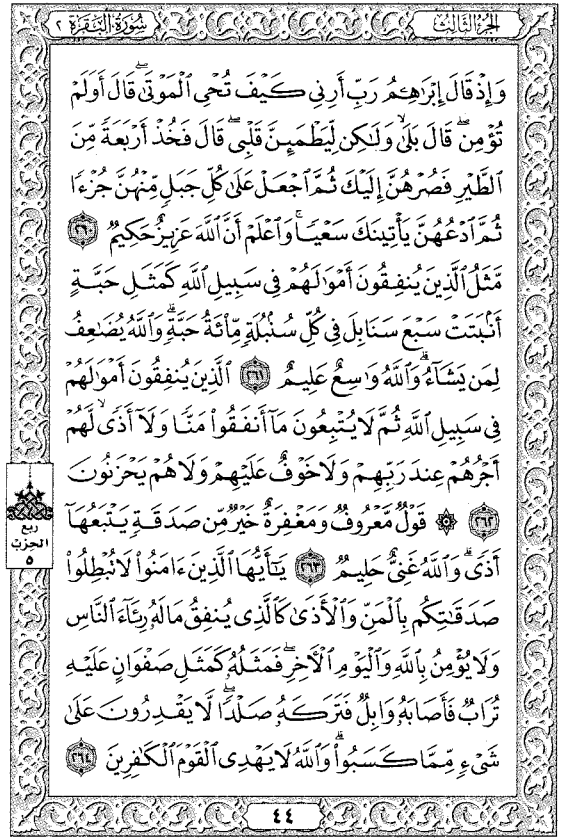 الجزء الثالث
سورة البقرة ٢
وَإِذْ قَالَ إِبْرَٰهِـۧمُ رَبِّ أَرِنِى كَيْفَ تُحْىِ ٱلْمَوْتَىٰ ۖ قَالَ أَوَلَمْ
تُؤْمِن ۖ قَالَ بَلَىٰ وَلَـٰكِن لِّيَطْمَئِنَّ قَلْبِى ۖ قَالَ فَخُذْ أَرْبَعَةً مِّنَ
ٱلطَّيْرِ فَصُرْهُنَّ إِلَيْكَ ثُمَّ ٱجْعَلْ عَلَىٰ كُلِّ جَبَلٍ مِّنْهُنَّ جُزْءًا
ثُمَّ ٱدْعُهُنَّ يَأْتِينَكَ سَعْيًا ۚ وَٱعْلَمْ أَنَّ ٱللَّهَ عَزِيزٌ حَكِيمٌ ٢٦٠
مَّثَلُ ٱلَّذِينَ يُنفِقُونَ أَمْوَٰلَهُمْ فِى سَبِيلِ ٱللَّهِ كَمَثَلِ حَبَّةٍ
أَنۢبَتَتْ سَبْعَ سَنَابِلَ فِى كُلِّ سُنۢبُلَةٍ مِّا۟ئَةُ حَبَّةٍ ۗ وَٱللَّهُ يُضَـٰعِفُ
لِمَن يَشَآءُ ۗ وَٱللَّهُ وَٰسِعٌ عَلِيمٌ ٢٦١ ٱلَّذِينَ يُنفِقُونَ أَمْوَٰلَهُمْ
فِى سَبِيلِ ٱللَّهِ ثُمَّ لَا يُتْبِعُونَ مَآ أَنفَقُوا۟ مَنًّا وَلَآ أَذًى ۙ لَّهُمْ
أَجْرُهُمْ عِندَ رَبِّهِمْ وَلَا خَوْفٌ عَلَيْهِمْ وَلَا هُمْ يَحْزَنُونَ
٢٦٢ ۞ قَوْلٌ مَّعْرُوفٌ وَمَغْفِرَةٌ خَيْرٌ مِّن صَدَقَةٍ يَتْبَعُهَآ
أَذًى ۗ وَٱللَّهُ غَنِىٌّ حَلِيمٌ ٢٦٣ يَـٰٓأَيُّهَا ٱلَّذِينَ ءَامَنُوا۟ لَا تُبْطِلُوا۟
صَدَقَـٰتِكُم بِٱلْمَنِّ وَٱلْأَذَىٰ كَٱلَّذِى يُنفِقُ مَالَهُۥ رِئَآءَ ٱلنَّاسِ
وَلَا يُؤْمِنُ بِٱللَّهِ وَٱلْيَوْمِ ٱلْـَٔاخِرِ ۖ فَمَثَلُهُۥ كَمَثَلِ صَفْوَانٍ عَلَيْهِ
تُرَابٌ فَأَصَابَهُۥ وَابِلٌ فَتَرَكَهُۥ صَلْدًا ۖ لَّا يَقْدِرُونَ عَلَىٰ
شَىْءٍ مِّمَّا كَسَبُوا۟ ۗ وَٱللَّهُ لَا يَهْدِى ٱلْقَوْمَ ٱلْكَـٰفِرِينَ ٢٦٤
ربع
الحزب
٥
٤٤